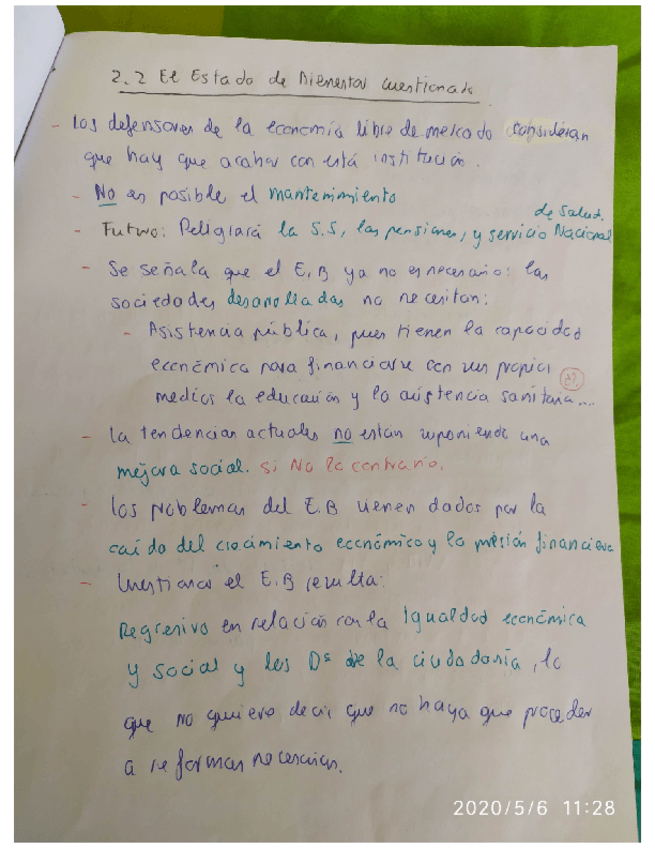 2.2 El Estado de Bienestar cuestionado
- Los defensores de la economía libre de mercado consideran
que hay que acabar con está institución.
- No es posible el mantenimiento
- Futuro: Peligrará la S.S, las pensiones, y servicio Nacional
de Salud.
- Se señala que el E.B ya no es necesario: las
sociedades desarrolladas no necesitan:
- Asistencia pública, pues tienen la capacidad
económica para financiarse con sus propios
medios la educación y la asistencia sanitaria....
- La tendencias actuales no están suponiendo una
mejora social. si No lo contrario.
- Los problemas del E.B vienen dados por la
caída del crecimiento económico y la presión financiera
- Cuestionar el E.B resulta:
Regresivo en relación con la Igualdad económica
y social y los Dº de la ciudadanía, lo
que no quiere decir que no haya que proceder
a reformas necesarias.
2020/5/6 11:28